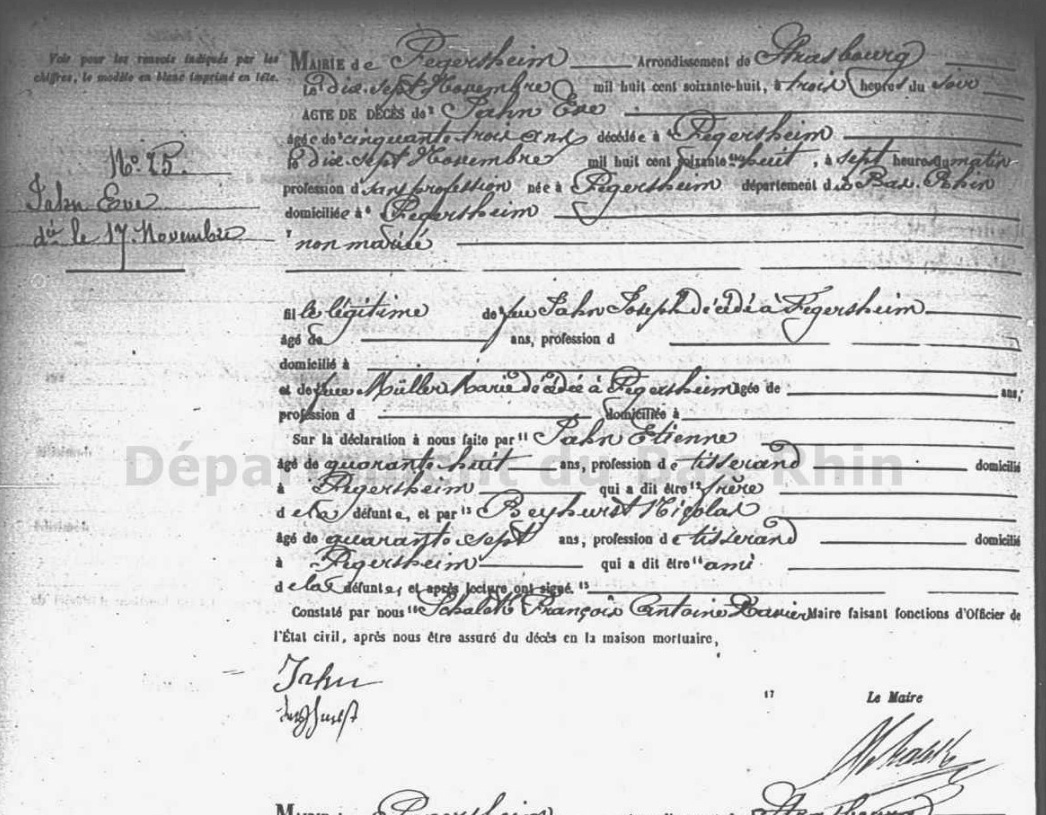 Voir pour les renvois indiqués par les
chiffres, le modèle en blanc imprimé en tête.
MAIRIE de Fegersheim Arrondissement de Strasbourg
le dix-sept Novembre mil huit cent soixante-huit, à trois heures du soir
ACTE DE DÉCÈS de Jahn Eve
âgée de cinquante trois ans décédée à Fegersheim
le dix-sept Novembre mil huit cent soixante-huit, à sept heures du matin
profession d sans profession née à Fegersheim département du Bas-Rhin
domiciliée à Fegersheim
7 non mariée
No. 75.
Jahn Eve
le 17. Novembre
fille légitime de feu Jahn Joseph décédé à Fegersheim
âgé de ans, profession d
domicilié à
et de feue Müller Marie décédée à Fegersheim âgée de ans,
profession d domiciliée à
Sur la déclaration à nous faite par 11 Jahn Etienne
âgé de quarante-huit ans, profession de tisserand domicilié
à Fegersheim qui a dit être 12 frère
de la défunte, et par 13 Nicolas
âgé de quarante-sept ans, profession de tisserand domicilié
à Fegersheim qui a dit être 14 ami
de la défunte, et après lecture ont signé. 15
Constaté par nous 16 François Antoine Xavier Maire faisant fonctions d'Officier de
l'État civil, après nous être assuré du décès en la maison mortuaire,
Jahn
17 Le Maire
MAIRIE de Fegersheim Strasbourg
Département du Bas-Rhin